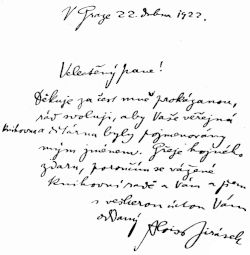 V Praze 22. dubna 1922.
Velectěný pane!
Děkuje za čest mně prokázanou,
rád svoluji, aby Vaše veřejná
knihovna a čítárna byly pojmenovány
mým jménem. Přeje hojného
zdaru, poroučím se vážené
knihovní radě a Vám a jsem
s veškerou úctou Vám
oddaný Alois Jirásek